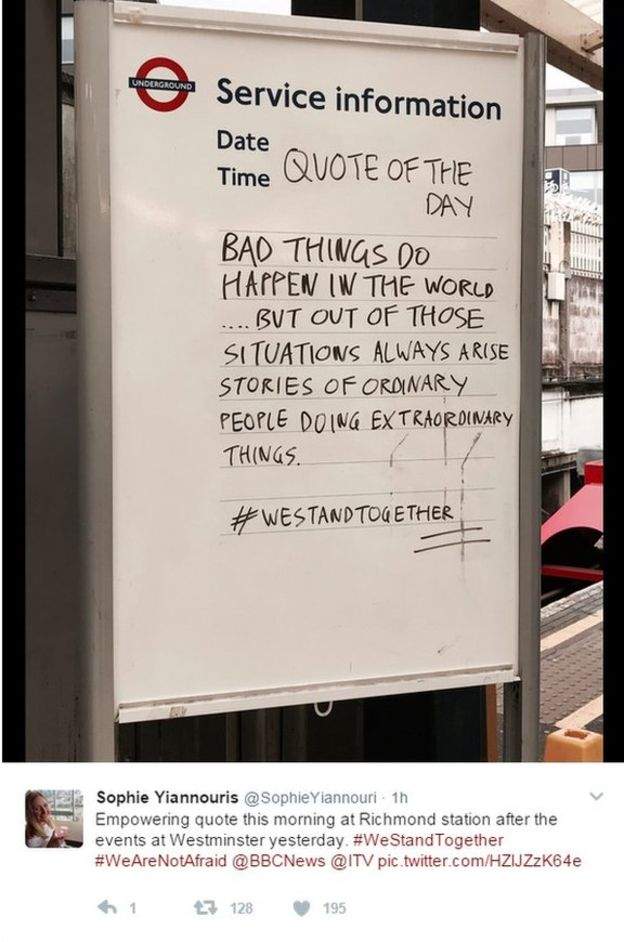 UNDERGROUND
Service information
Date
Time QUOTE OF THE
DAY
BAD THINGS DO
HAPPEN IN THE WORLD
.... BUT OUT OF THOSE
SITUATIONS ALWAYS ARISE
STORIES OF ORDINARY
PEOPLE DOING EXTRAORDINARY
THINGS.
#WESTANDTOGETHER
Sophie Yiannouris @SophieYiannouri · 1h
Empowering quote this morning at Richmond station after the
events at Westminster yesterday. #WeStandTogether
#WeAreNotAfraid @BBCNews @ITV pic.twitter.com/HZIJZzK64e
1 128 195